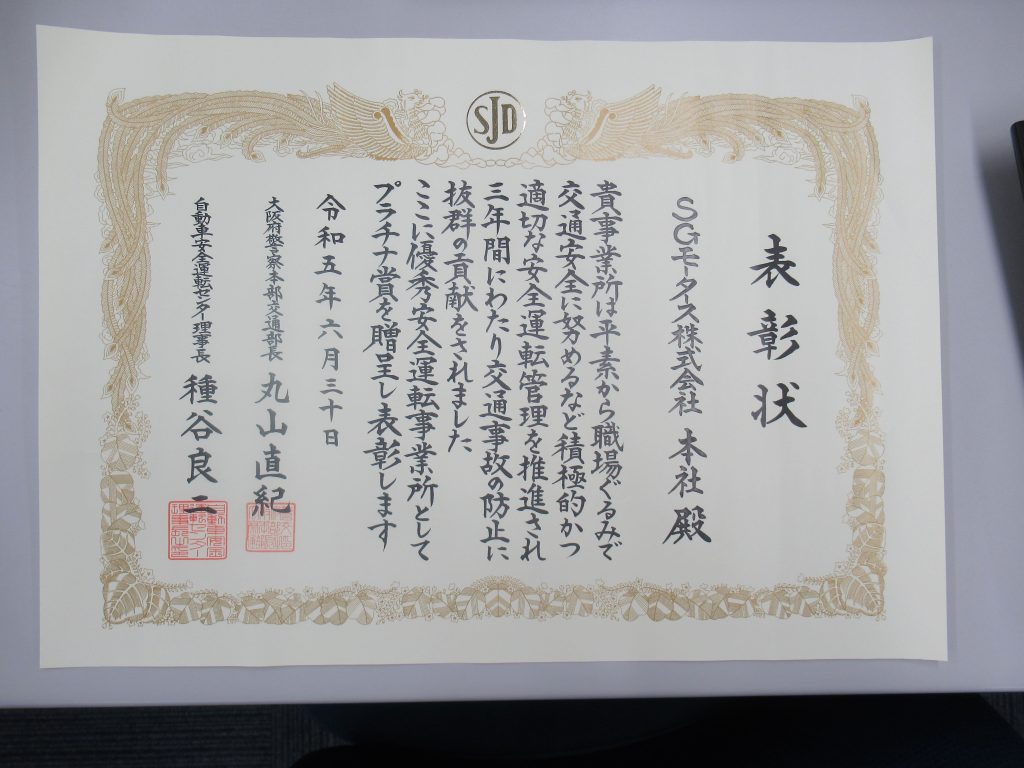 SJD
表彰状
SGモータース株式会社 本社殿
貴事業所は平素から職場ぐるみで
交通安全に努めるなど積極的かつ
適切な安全運転管理を推進され
三年間にわたり交通事故の防止に
抜群の貢献をされました
ここに優秀安全運転事業所として
プラチナ賞を贈呈し表彰します
令和五年六月三十日
大阪府警察本部交通部長 丸山直紀
自動車安全運転センター理事長 種谷良二